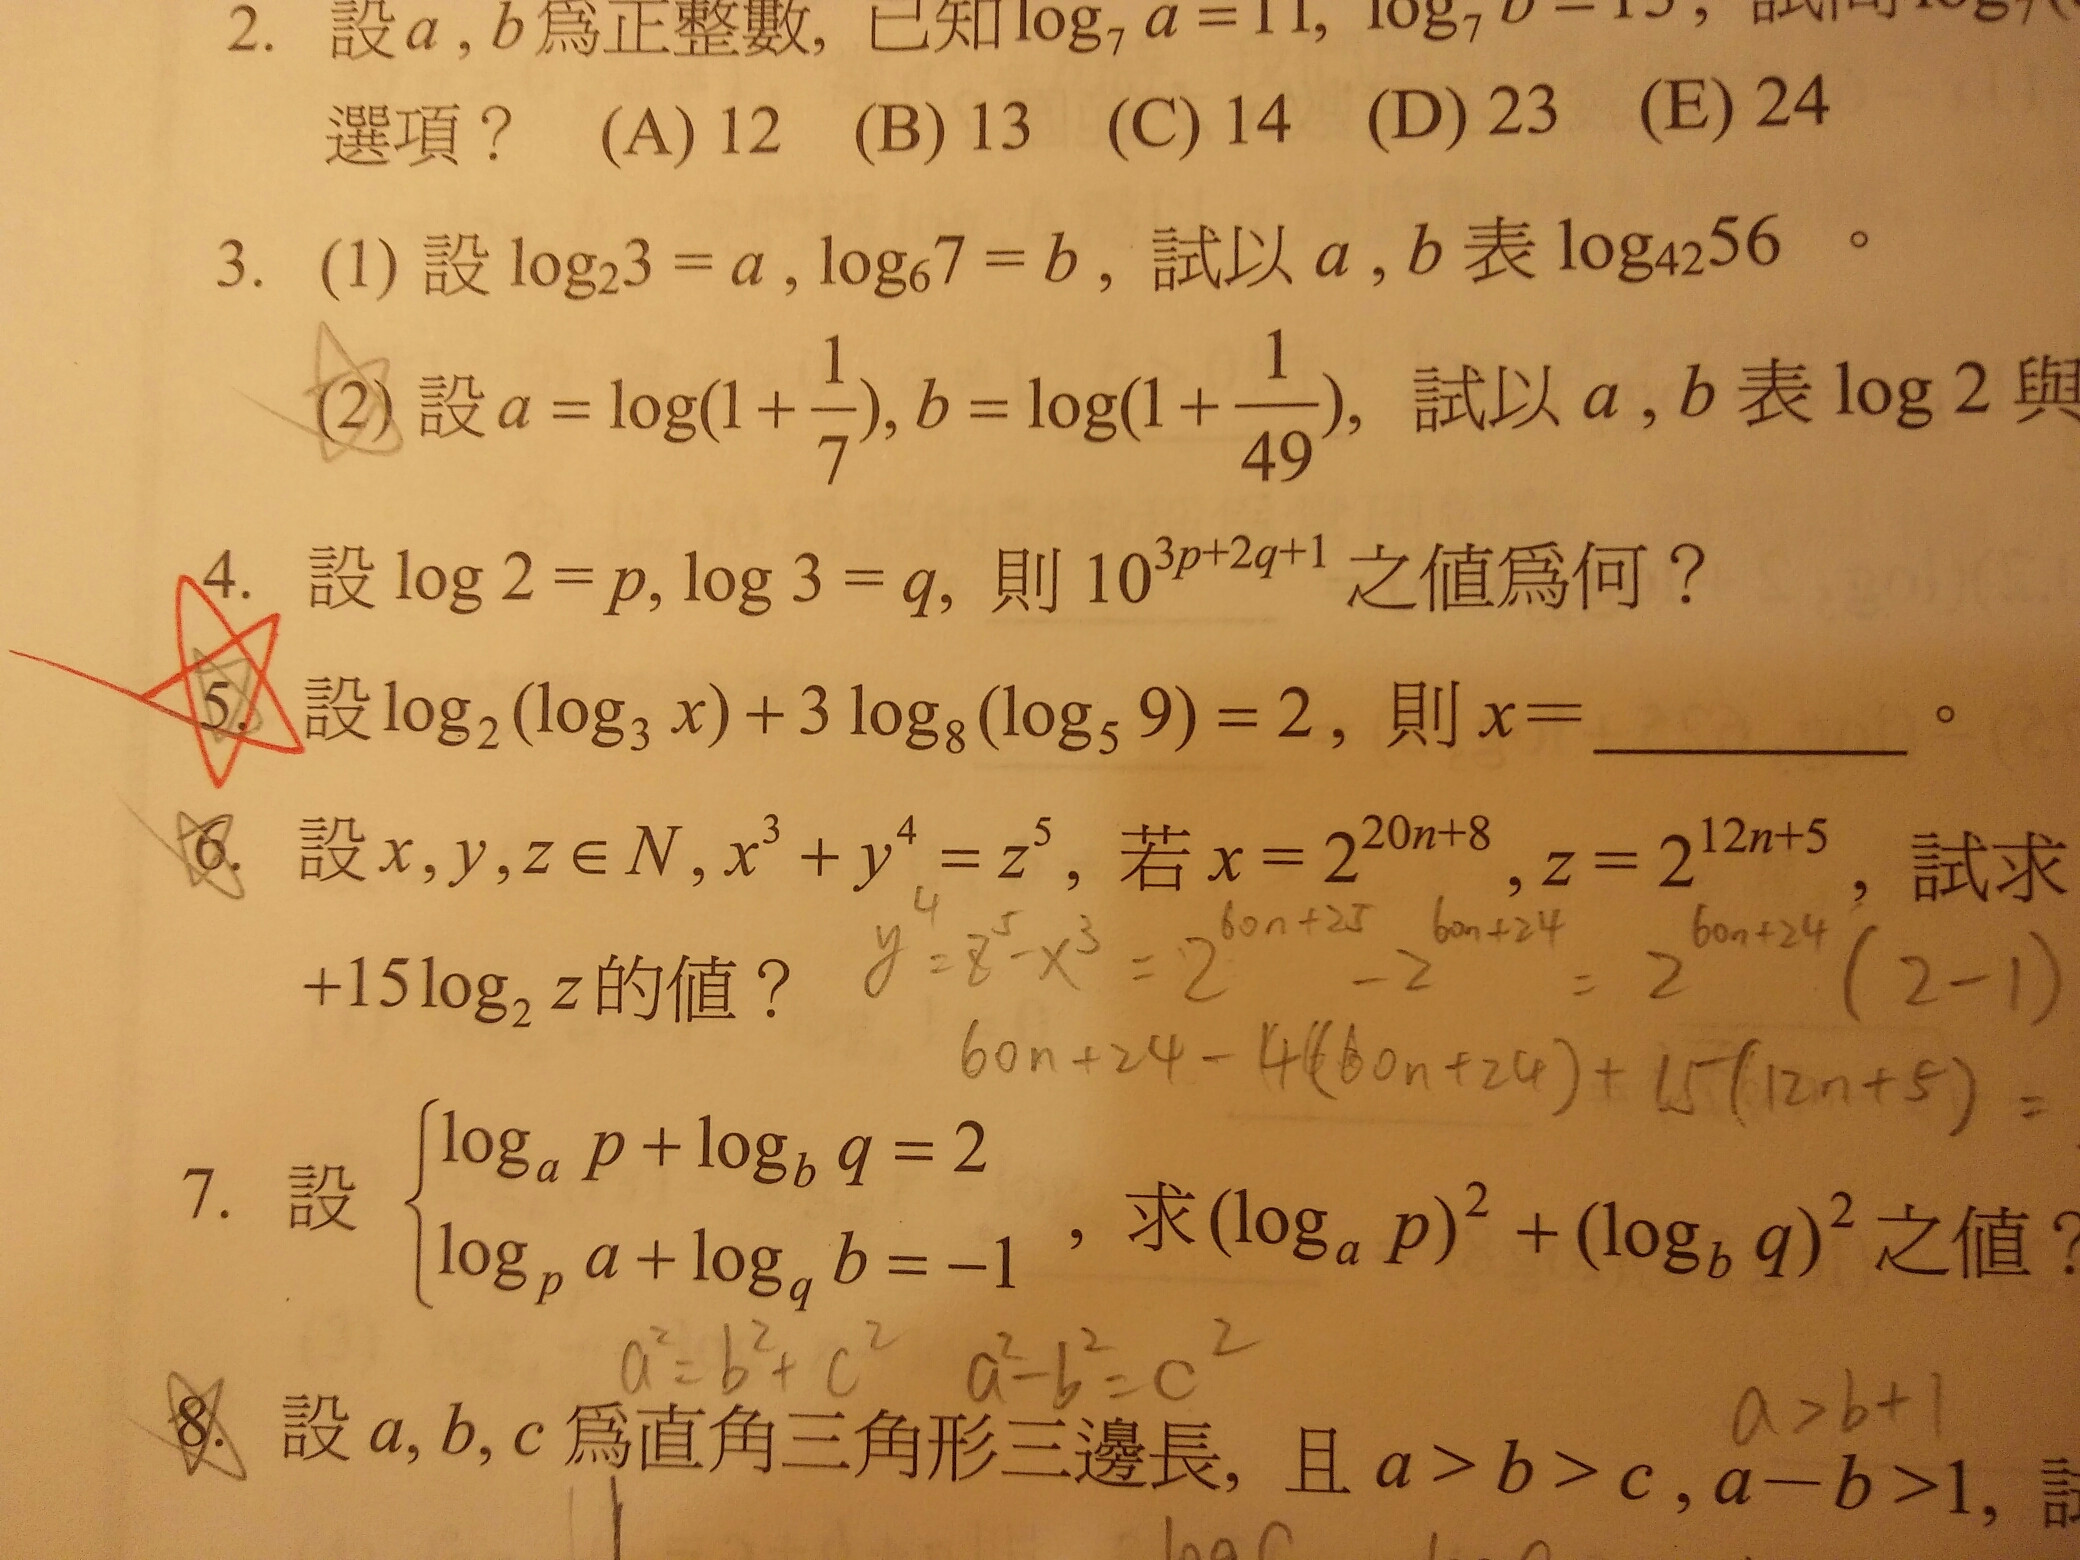 2. 設 a , b 為正整數, 已知 log₇ a = 11, log₇ b = 13, 試問 log₇(
選項? (A) 12 (B) 13 (C) 14 (D) 23 (E) 24
3. (1) 設 log₂3 = a , log₆7 = b , 試以 a , b 表 log₄₂56 。
(2) 設 a = log(1 + 1/7), b = log(1 + 1/49), 試以 a , b 表 log 2 與
4. 設 log 2 = p, log 3 = q, 則 10^(3p+2q+1) 之值為何?
5. 設 log₂(log₃ x) + 3 log₈(log₅ 9) = 2 , 則 x = ________ 。
6. 設 x , y , z ∈ N , x³ + y⁴ = z⁵ , 若 x = 2^(20n+8) , z = 2^(12n+5) , 試求
+15 log₂ z 的值?
y⁴ = z⁵ - x³ = 2^(60n+25) - 2^(60n+24) = 2^(60n+24) (2-1)
60n+24 - 4(60n+24) + 15(12n+5) =
7. 設 { logₐ p + log_b q = 2
log_p a + log_q b = −1 , 求 (logₐ p)² + (log_b q)² 之值?
a² = b² + c² a² - b² = c²
a > b+1
8. 設 a, b, c 為直角三角形三邊長, 且 a > b > c , a − b > 1, 試